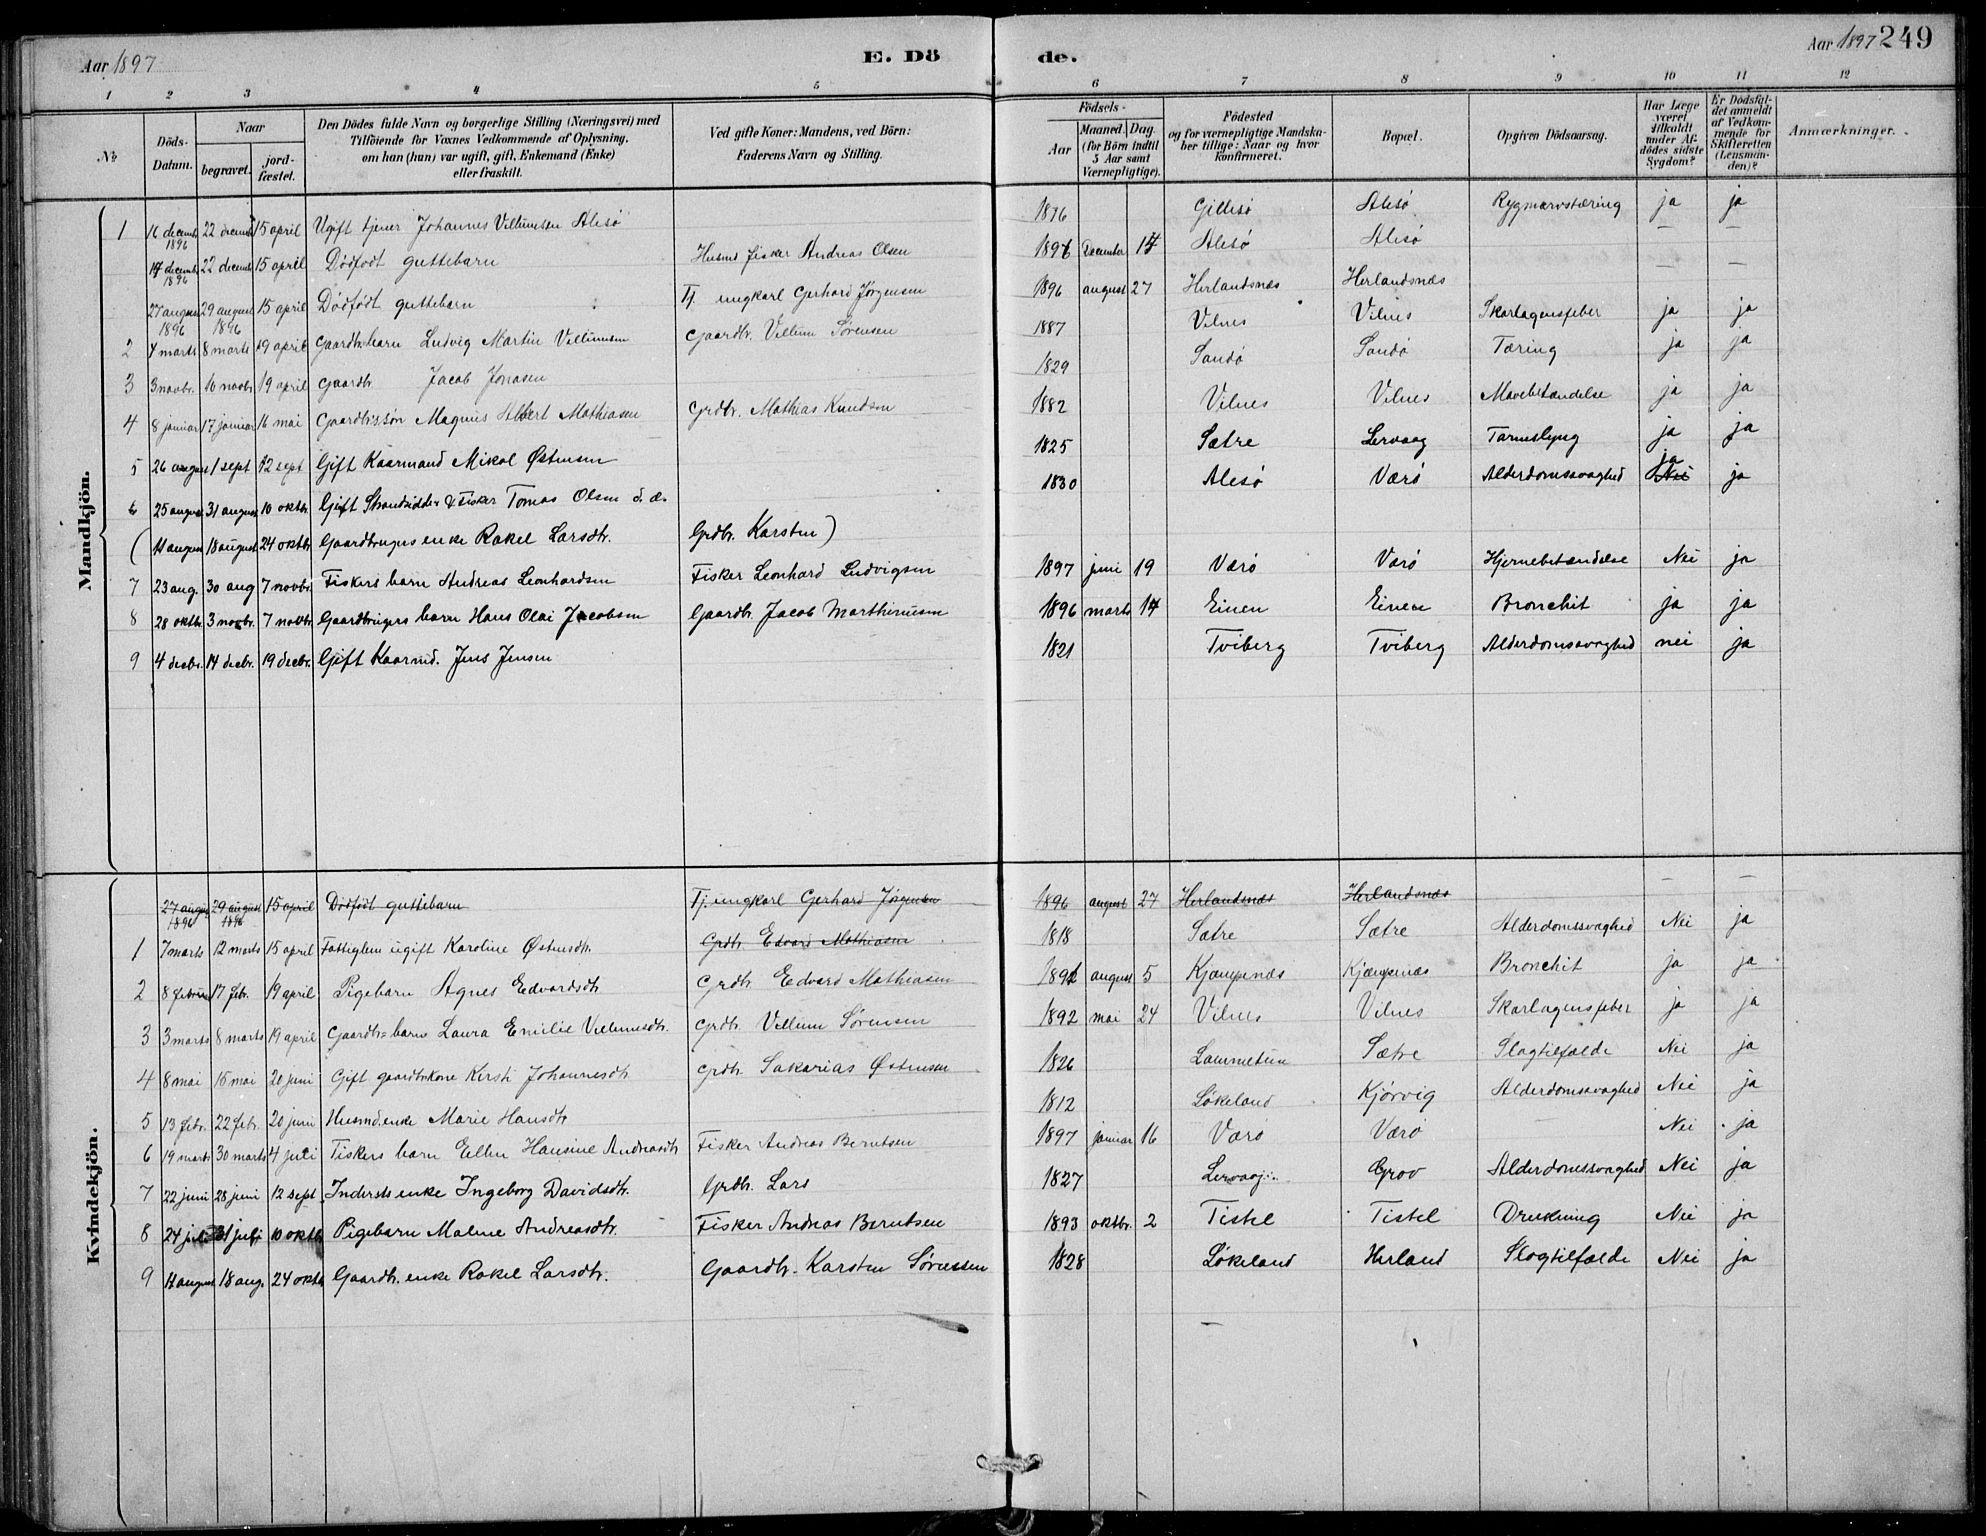 Aar 1897
E. Dö
de.
Aar 1897 249
1 2 3 4 5 6 7 8 9 10 11 12
No
Döds-Datum.
Naar
begravet.
jord-fæstet.
Den Dödes fulde Navn og borgerlige Stilling (Næringsvei) med
Tilföiende for Voxnes Vedkommende af Oplysning,
om han (hun) var ugift, gift, Enkemand (Enke)
eller fraskilt.
Ved gifte Koner: Mandens, ved Börn:
Faderens Navn og Stilling.
Födsels-
Aar
Maaned. Dag.
(for Börn indtil
5 Aar samt
Værnepligtige).
Födested
og for værnepligtige Mandska-
ber tillige: Naar og hvor
konfirmeret.
Bopæl.
Opgiven Dödsaarsag.
Har Læge
været
tilkaldt
under Af-
dödes sidste
Sygdom?
Er Dödsfal-
det anmeldt
af Vedkom-
mende for
Skifteretten
(Lensman-
den)?
Anmærkninger.
Mandkjön.
1 16 decemb. 1896 22 decemb. 15 april Ugift tjener Johannes Villumsen Alesö 1876 Gillesö Alesö Rygmarvstæring ja ja
14 decemb. 1896 22 decemb. 15 april Dödfödt guttebarn Husmd fisker Andreas Olsen 1896 December 14 Alesö Alesö — —
27 august 1896 29 august 1896 15 april Dödfödt guttebarn Tj. ungkarl Gerhard Jörgensen 1896 august 27 Herlandsnæs Herlandsnæs — —
2 4 marts 8 marts 19 april Gaardbr. barn Ludvig Martin Villumsen Gaardbr. Villum Sørensen 1887 Vilnes Vilnes Skarlagensfeber ja ja
3 3 novbr. 10 novbr. 19 april Gaardbr. Jacob Jonasen 1829 Sandö Sandö Tæring ja ja
4 8 januar 17 januar 16 mai Gaardbr.ssøn Magnus Albert Mathiasen Grdbr. Mathias Knudsen 1882 Vilnes Vilnes Mavebetændelse ja ja
5 26 august 1 sept 12 sept Gift Kaarmand Mikal Østensen 1825 Sætre Lervaag Tarmslyng ja ja
6 25 august 31 august 10 oktbr Gift Strandsidder & Fisker Tomas Olsen d. æ. 1830 Alesö Værö Alderdomssvaghed Nei ja ja
( 11 august 18 august 24 oktbr Gaardbrugers enke Rakel Larsdtr. Grdbr. Karsten)
7 23 aug. 30 aug 7 novbr. Fiskers barn Andreas Leonhardsen Fisker Leonhard Ludvigsen 1897 juni 19 Værö Værö Hjernebetændelse Nei ja
8 28 oktbr. 3 novbr. 7 novbr. Gaardbrugers barn Hans Olai Jacobsen Gaardbr. Jacob Marthinusen 1896 marts 14 Einen Einen Bronchit ja ja
9 4 decbr. 14 decbr. 19 decbr. Gift Kaarmd. Jens Jensen 1821 Tviberg Tviberg Alderdomssvaghed nei ja
Kvindekjön.
27 august 1896 29 august 1896 15 april Dödfödt guttebarn Tj. ungkarl Gerhard Jörgensen 1896 august 27 Herlandsnæs Herlandsnæs — —
1 7 marts 12 marts 15 april Fattiglem ugift Karoline Østensdtr. Grdbr. Edvard Mathiasen 1818 Sætre Sætre Alderdomssvaghed Nei ja
2 8 februar 17 febr. 19 april Pigebarn Agnes Edvardsdtr Grdbr. Edvard Mathiasen august 5 Kjempenæs Kjæmpenæs Bronchit ja ja
3 3 marts 8 marts 19 april Gaardbr. barn Laura Emilie Villumsdtr. Grdbr. Villum Sørensen 1892 mai 24 Vilnes Vilnes Skarlagensfeber ja ja
4 8 mai 15 mai 20 juni Gift gaardbrkone Kirsti Johannesdtr Grdbr. Sakarias Østensen 1826 Lammetun Sætre Slagtilfælde Nei ja
5 13 febr. 22 febr. 20 juni Husmdenke Marie Hansdtr 1812 Løkeland Kjörvig Alderdomssvaghed Nei ja
6 19 marts 30 marts 4 juli Fiskers barn Ellen Hansine Andreasdtr Fisker Andreas Berntsen 1897 januar 16 Værö Værö — Nei ja
7 22 juni 28 juni 12 sept Inderstsenke Ingeborg Davidsdtr. Grdbr. Lars 1827 Lervaag Grov Alderdomssvaghed Nei ja
8 24 juli 31 juli 10 oktbr. Pigebarn Malene Andreasdtr. Fisker Andreas Berntsen 1893 oktbr. 2 Tistel Tistel Drukning Nei ja
9 11 august 18 aug. 24 oktbr Gaardbr. enke Rakel Larsdtr. Gaardbr. Karsten Sörensen 1828 Løkeland Herland Slagtilfælde Nei ja